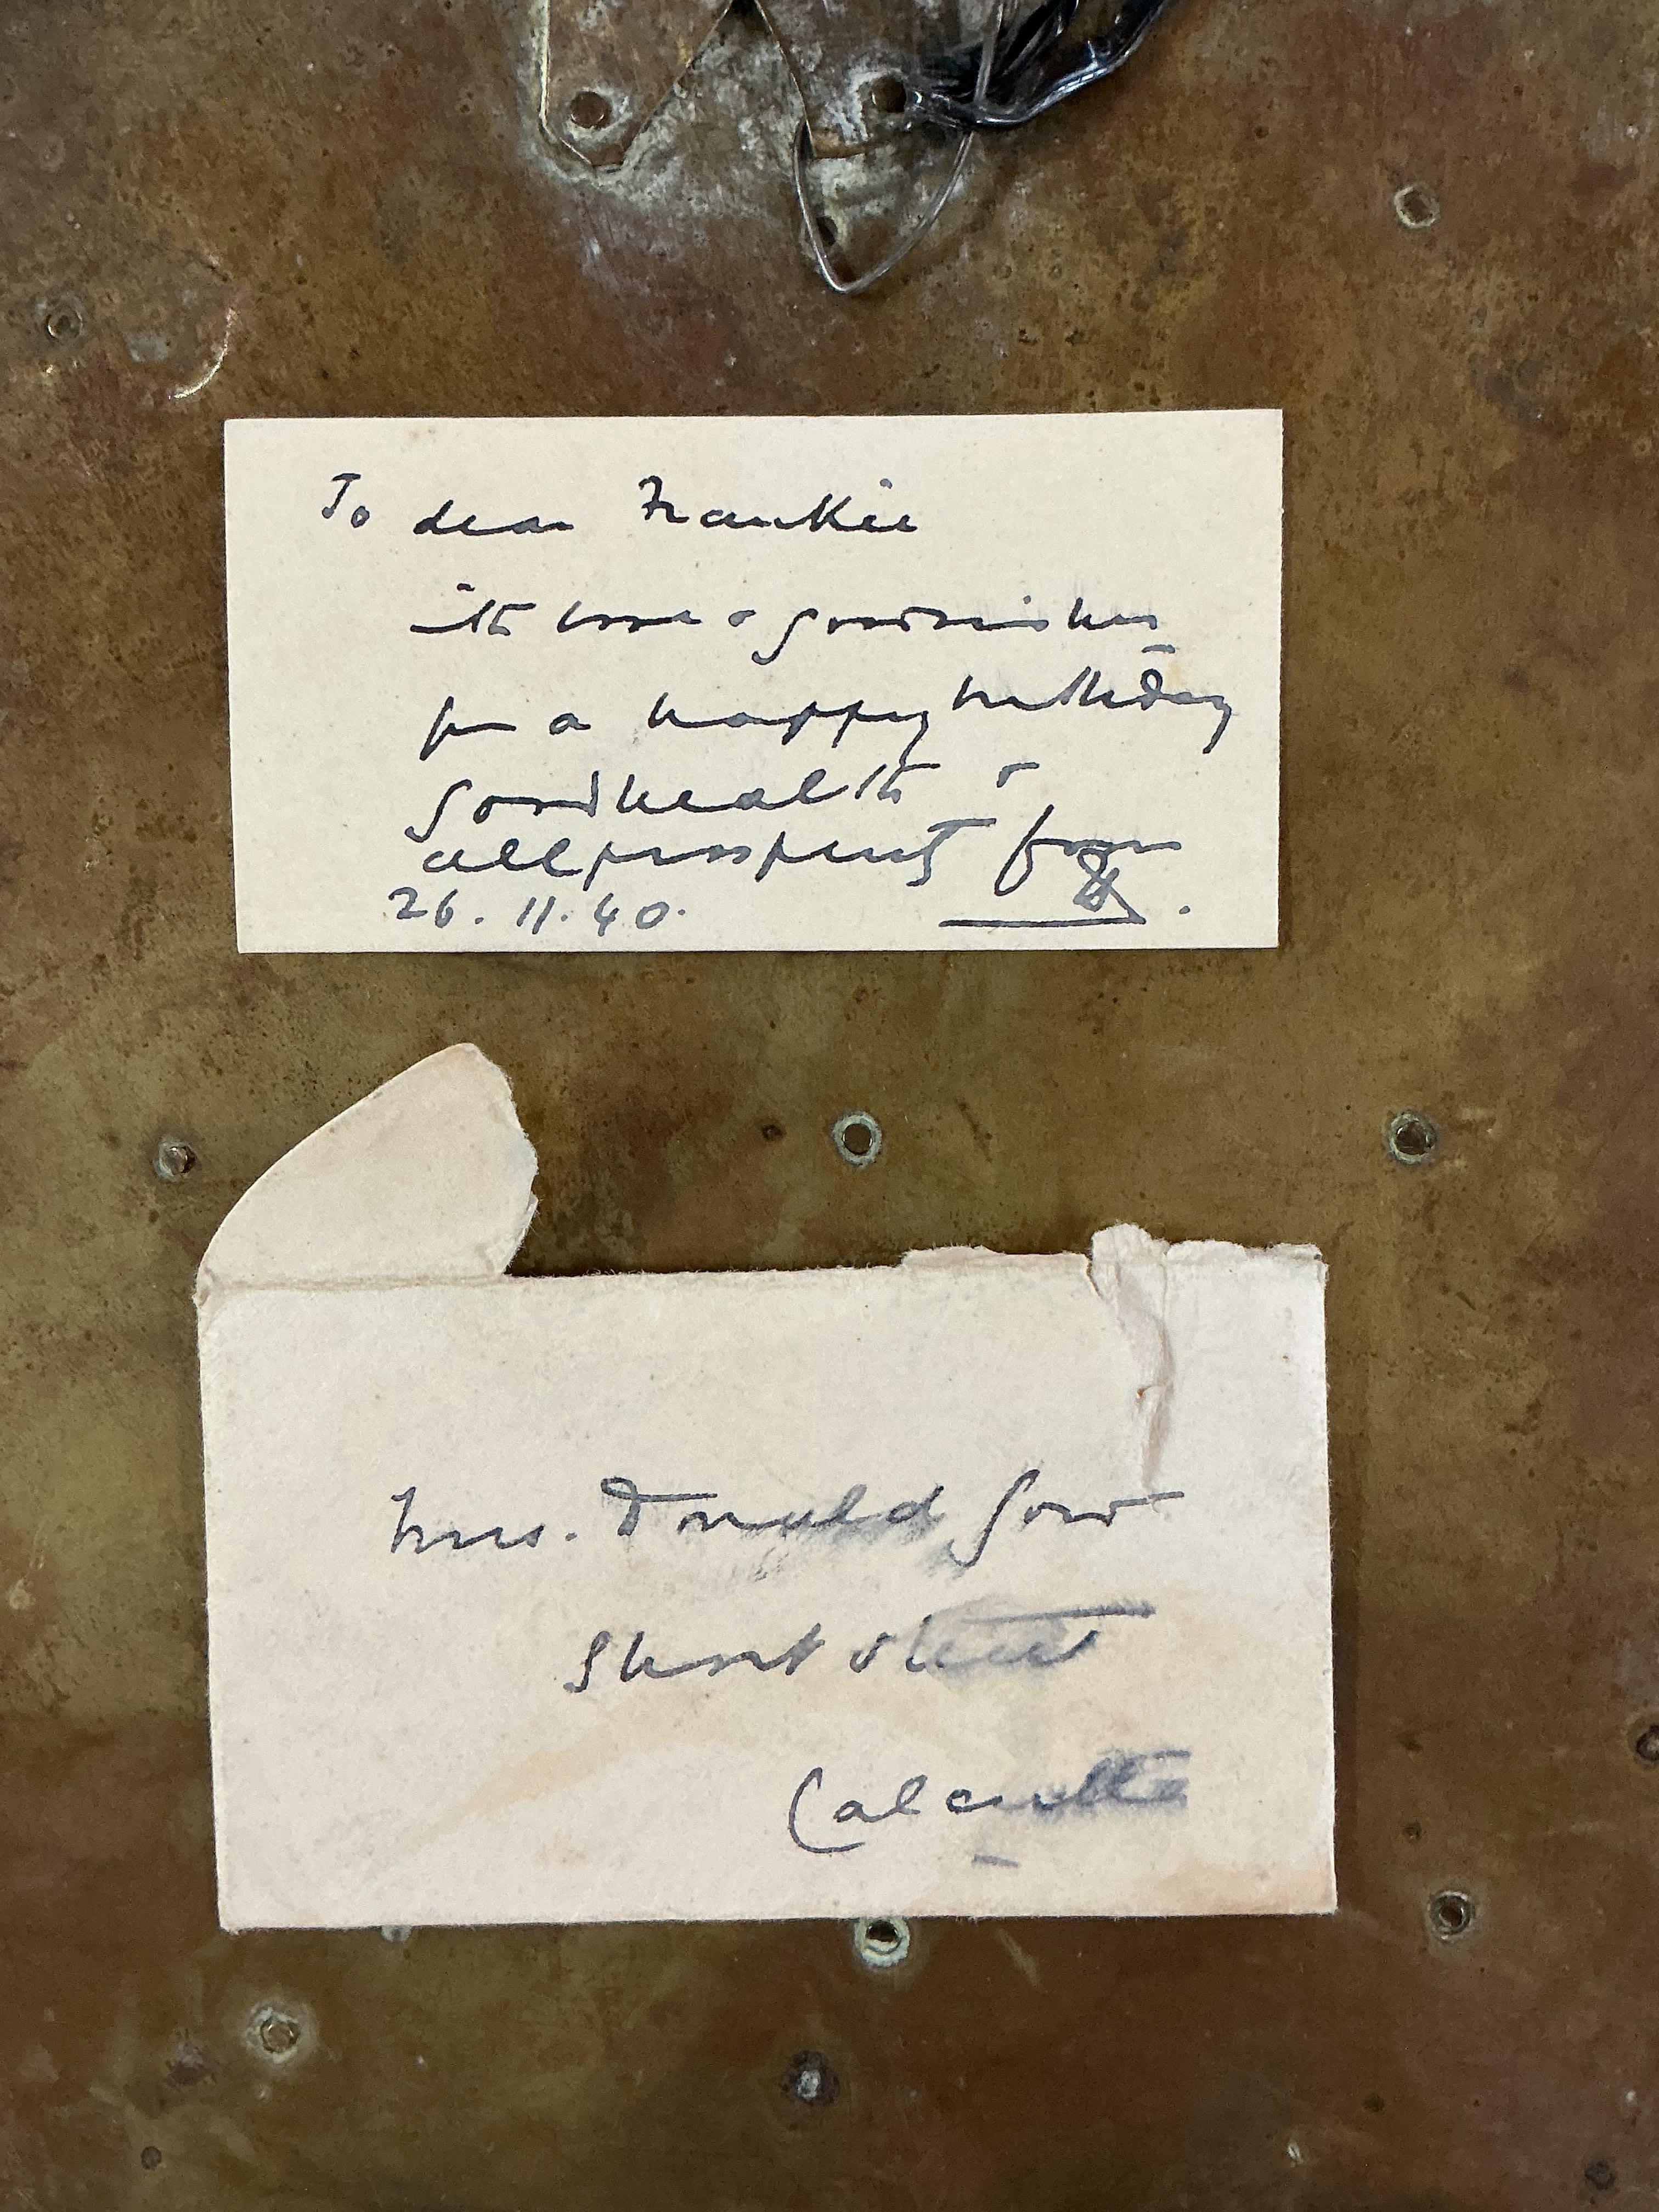 To dear Frankie
with love & good wishes
for a happy birthday
good health &
all prosperity from
26.11.40.
Mrs. Donald Gow
Short Street
Calcutta